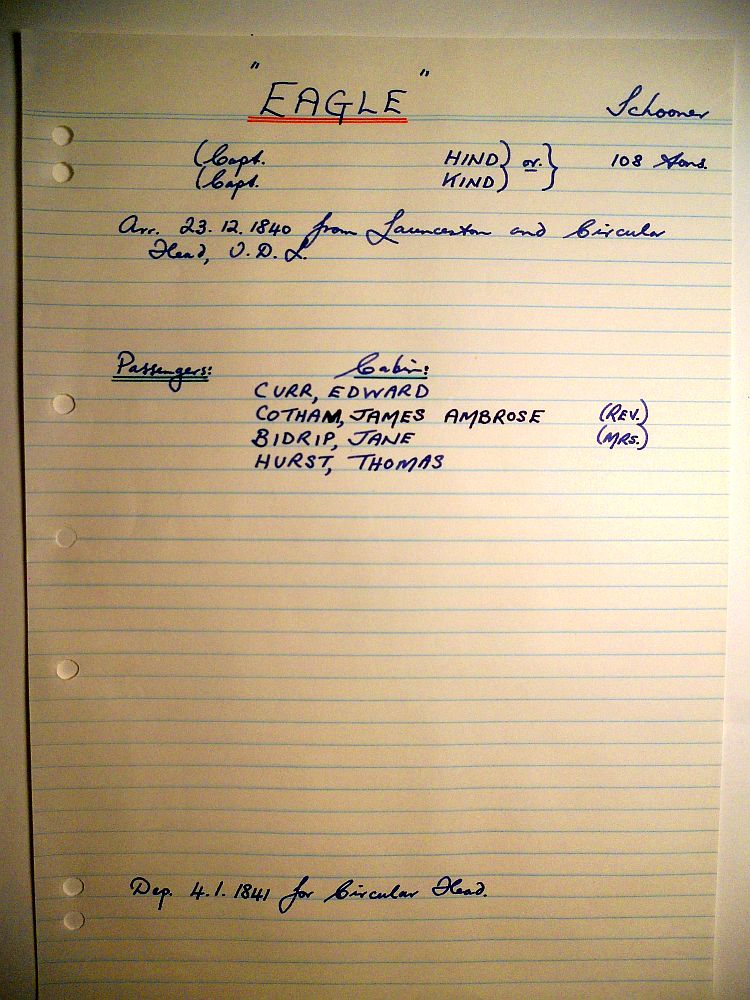 "EAGLE" Schooner
(Capt. HIND) or. } 108 tons.
(Capt. KIND)
Arr. 23.12.1840 from Launceston and Circular
Head, V.D.L.
Passengers: Cabin:
CURR, EDWARD
COTHAM, JAMES AMBROSE (REV.)
BIDRIP, JANE (MRS.)
HURST, THOMAS
Dep. 4.1.1841 for Circular Head.